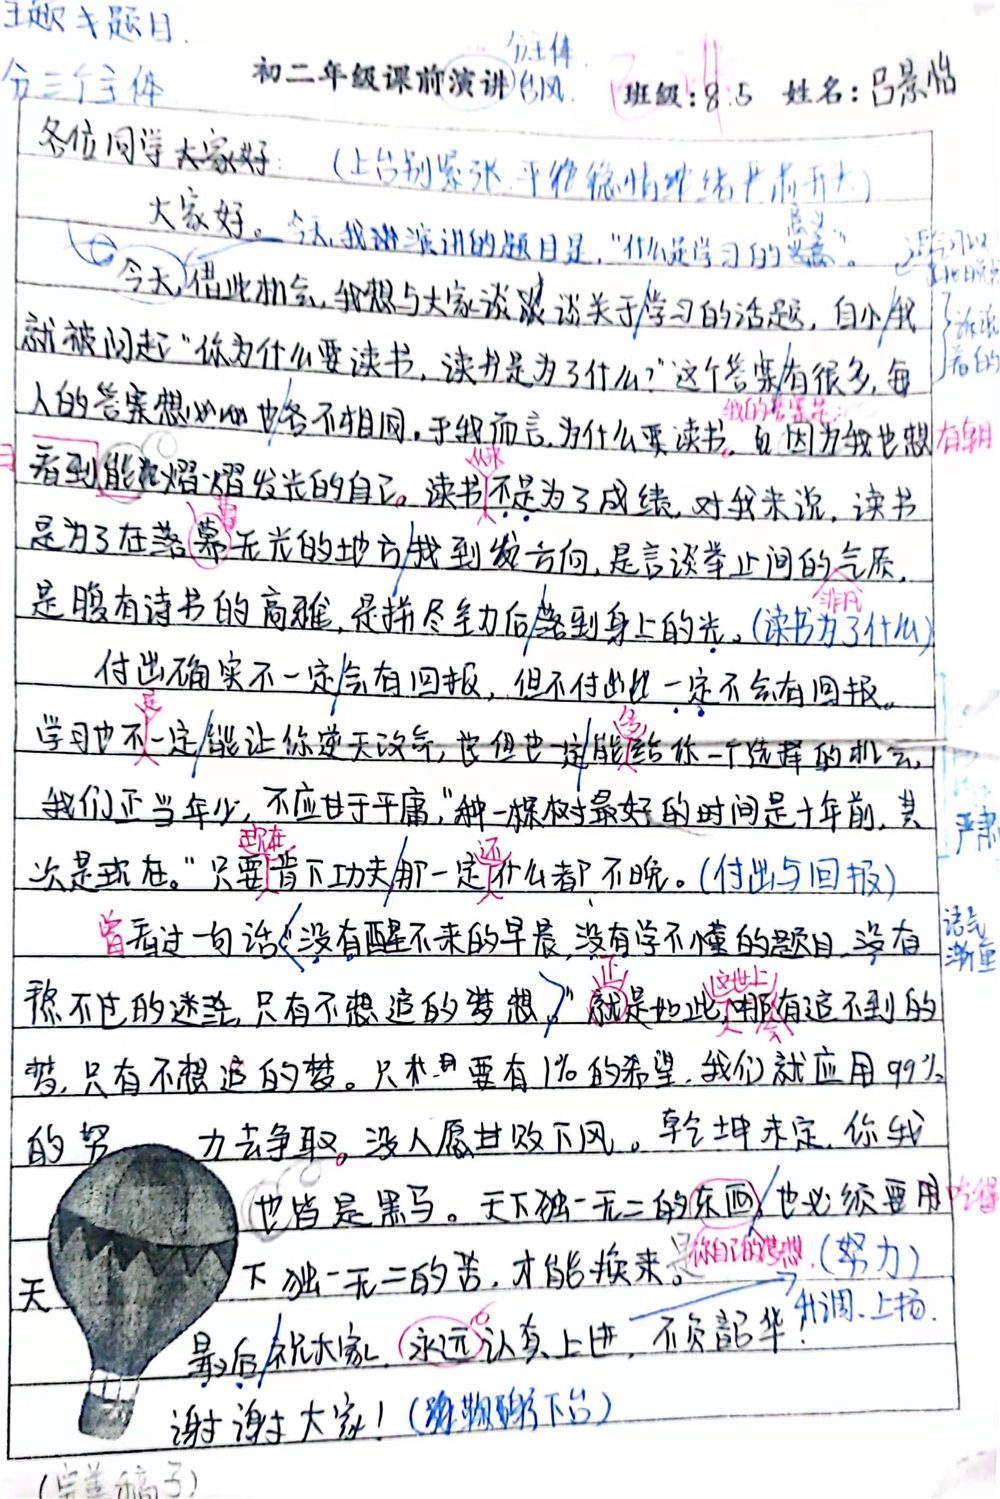 主题 题目.
分三个主体
分主体
台风.
初二年级课前演讲
班级:8.5 姓名:吕景怡
各位同学大家好:
(上台别紧张.平稳 情绪 严肃开大)
大家好。今天,我 演讲的题目是,"什么是学习的意义"。
今天,借此机会,我想与大家谈谈关于学习的话题,自小我
就被问起"你为什么要读书,读书是为了什么?"这个答案有很多,每
我的答案是:
人的答案想必也各不相同。于我而言,为什么要读书。因为我也想 有朝
看到能熠熠发光的自己。读书从来不是为了成绩,对我来说,读书
是为了在落幕无光的地方找到发方向,是言谈举止间的气质,
非凡
是腹有诗书的高雅,是拼尽全力后落到身上的光。(读书为了什么)
付出确实不一定会有回报,但不付出 一定不会有回报。
学习也不是一定能让你逆天改命,但也一定能给你一个选择的机会,
我们正当年少,不应甘于平庸,"种一棵树最好的时间是十年前,其
严肃
现在 还
次是现在。"只要肯下功夫那一定什么都不晚。(付出与回报)
曾看过一句话"没有醒不来的早晨,没有学不懂的题目,没有
语气
渐重
正 这世上
猜不透的迷 ,只有不想追的梦想,"就是如此,哪有追不到的
梦,只有不想追的梦。只 要有1%的希望,我们就应用99%
的努力去争取。没人愿甘败下风。乾坤未定,你我
也皆是黑马。天下独一无二的东西,也必须要用
你自己的梦想 (努力)
天下独一无二的苦,才能换来。
升调.上扬.
最后祝大家,永远认真上进,不负韶华!
谢谢大家!(鞠躬下台)
(完美稿子)